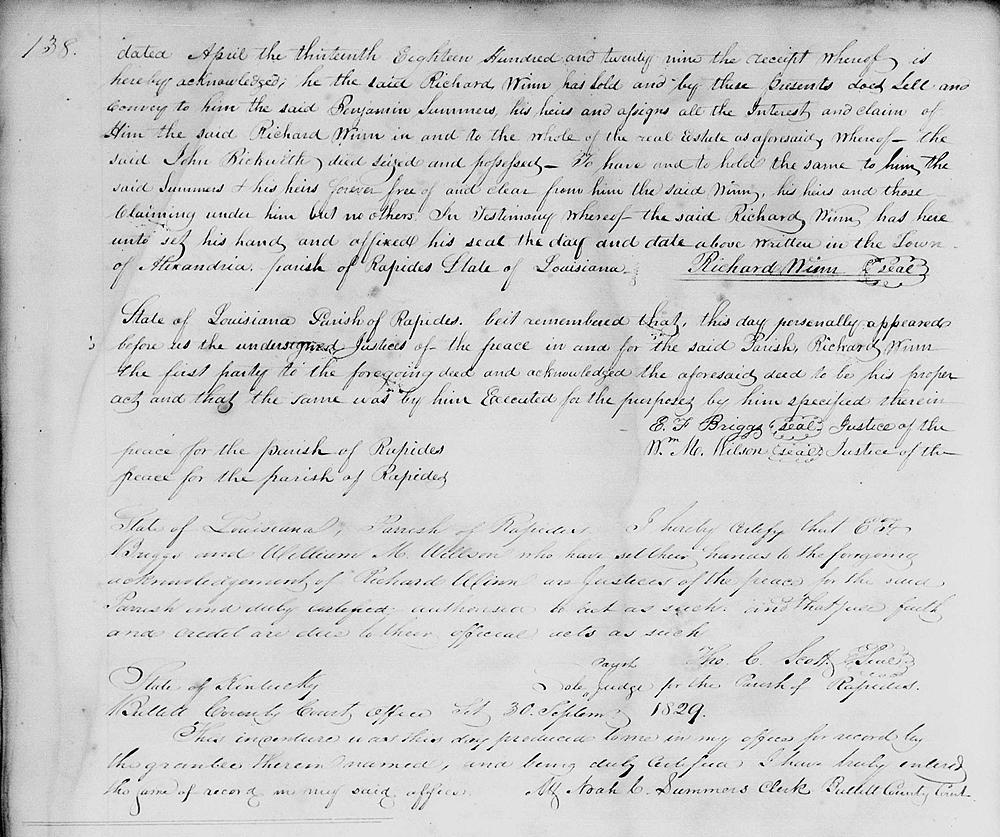 138.
dated April the thirteenth Eighteen Hundred and twenty nine the receipt whereof is
hereby acknowledged, he the said Richard Winn has sold and by these Presents does Sell and
Convey to him the said Benjamin Summers, his heirs and assigns all the Interest and claim of
Him the said Richard Winn in and to the whole of the real Estate as aforesaid, Whereof - the
said John Rickwith died seized and possessed - To have and to hold the same to him, the
said Summers & his heirs forever free of and clear from him the said Winn, his heirs and those
Claiming under him but no others. In Testimony Whereof the said Richard Winn has here
unto set his hand and affixed his seal the day and date above written in the Town
of Alexandria parish of Rapides State of Louisiana. Richard Winn (seal)
State of Louisiana Parish of Rapides. be it remembered that, this day personally appeared
before us the undersigned Justices of the peace in and for the said Parish, Richard Winn
the first party to the foregoing deed and acknowledged the aforesaid deed to be his proper
act and that the same was by him Executed for the purposes by him specified therein
E. F. Briggs (seal) Justice of the
peace for the parish of Rapides Wm. M. Wilson (seal) Justice of the
peace for the parish of Rapides
State of Louisiana, Parrish of Rapides. I hereby certify that E F
Briggs and William M. Willson who have set their hands to the forgoing
acknowledgement of Richard Winn are Justices of the peace for the said
Parish and duly certified authorised to act as such and that full faith
and credit are due to their official acts as such
Tho. C. Scott (Seal)
State of Kentucky Sole Parish Judge for the Parish of Rapides.
Bullitt County Court Office Sct 30 Septem 1829.
This indenture was this day produced to me in my office for record by
the grantee therein named, and being duly certified I have truly entered
the same of record in my said office. Att Noah C. Summers Clerk Bullitt County Court